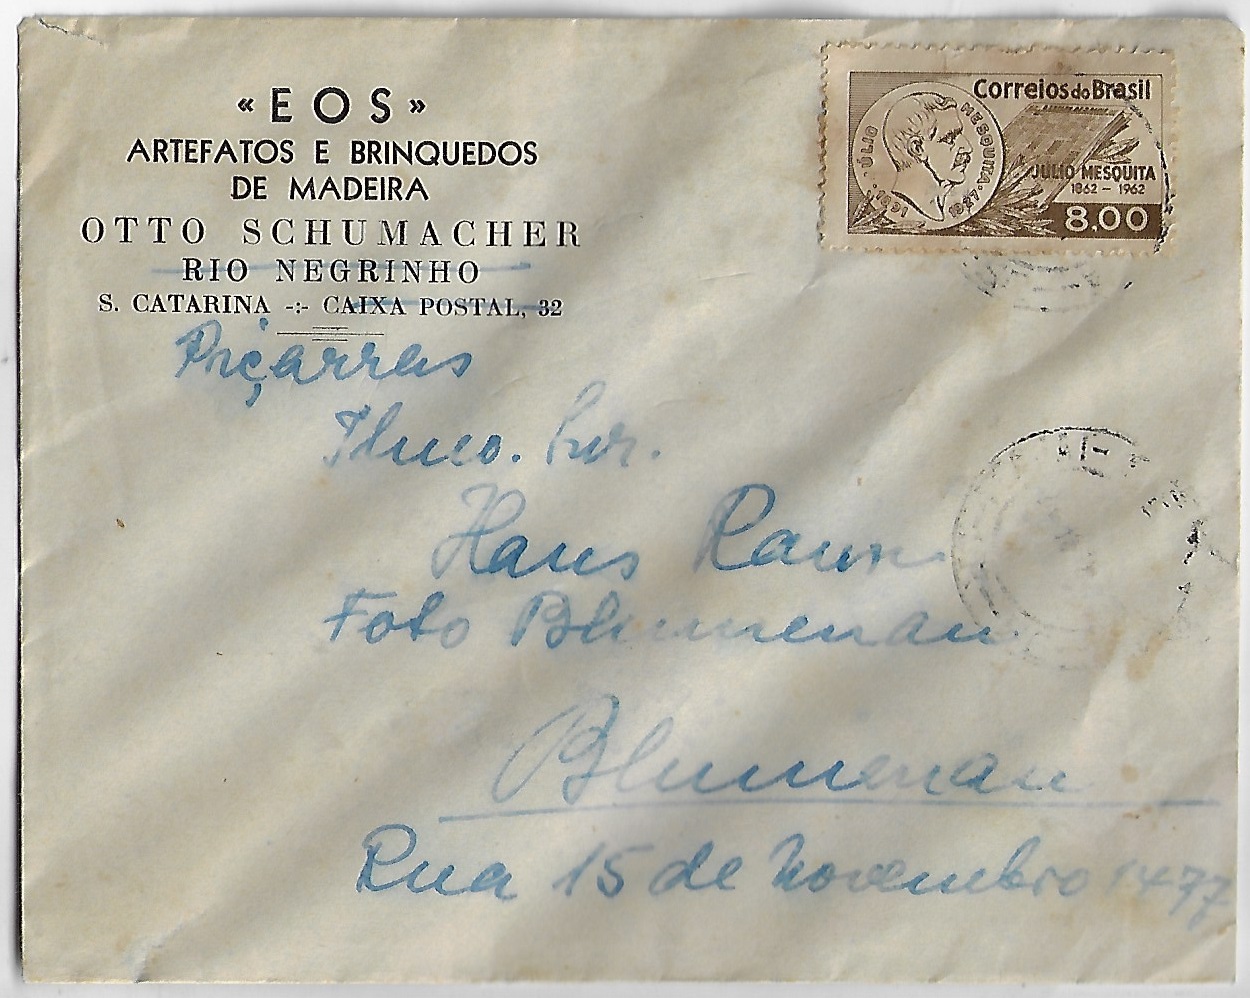 «EOS»
ARTEFATOS E BRINQUEDOS
DE MADEIRA
OTTO SCHUMACHER
RIO NEGRINHO
S. CATARINA -:- CAIXA POSTAL, 32
Piçarras
Correios do Brasil
JÚLIO MESQUITA
1862 - 1962
8,00
JÚLIO MESQUITA
1927
Ilmo. Snr.
Hans Raun
Foto Blumenau
Blumenau
Rua 15 de Novembro 1477